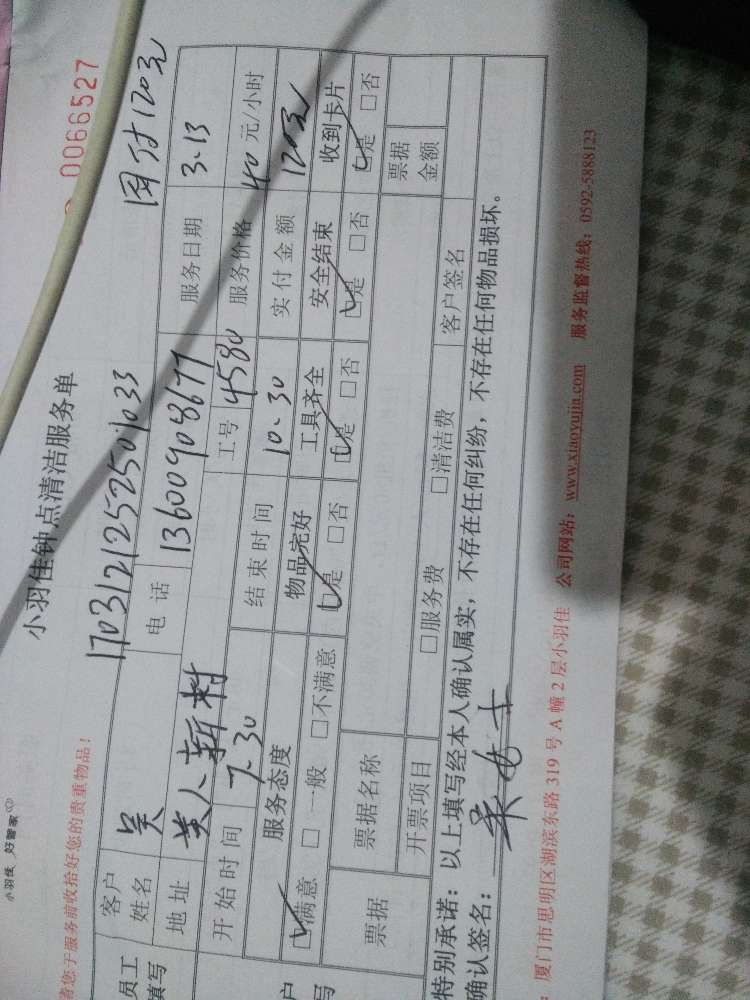 小羽佳 好管家
小羽佳钟点清洁服务单
0066527
者您于服务前收拾好您的贵重物品!
170312125250 033
网付120元
员工
填写
客户
姓名
吴
电话
13600908677
服务日期
3.13
地址
美人新村
工号
4580
服务价格
40元/小时
开始时间
7.30
结束时间
10.30
实付金额
120元
户
写
服务态度
物品完好
工具齐全
安全结束
收到卡片
☑满意 □一般 □不满意
☑是 □否
☑是 □否
☑是 □否
☑是 □否
票据
票据名称
票据
金额
开票项目
□服务费 □清洁费
客户签名
特别承诺:以上填写经本人确认属实,不存在任何纠纷,不存在任何物品损坏。
确认签名:吴女士
:厦门市思明区湖滨东路319号A幢2层小羽佳 公司网站:www.xiaoyujia.com 服务监督热线:0592-5888123